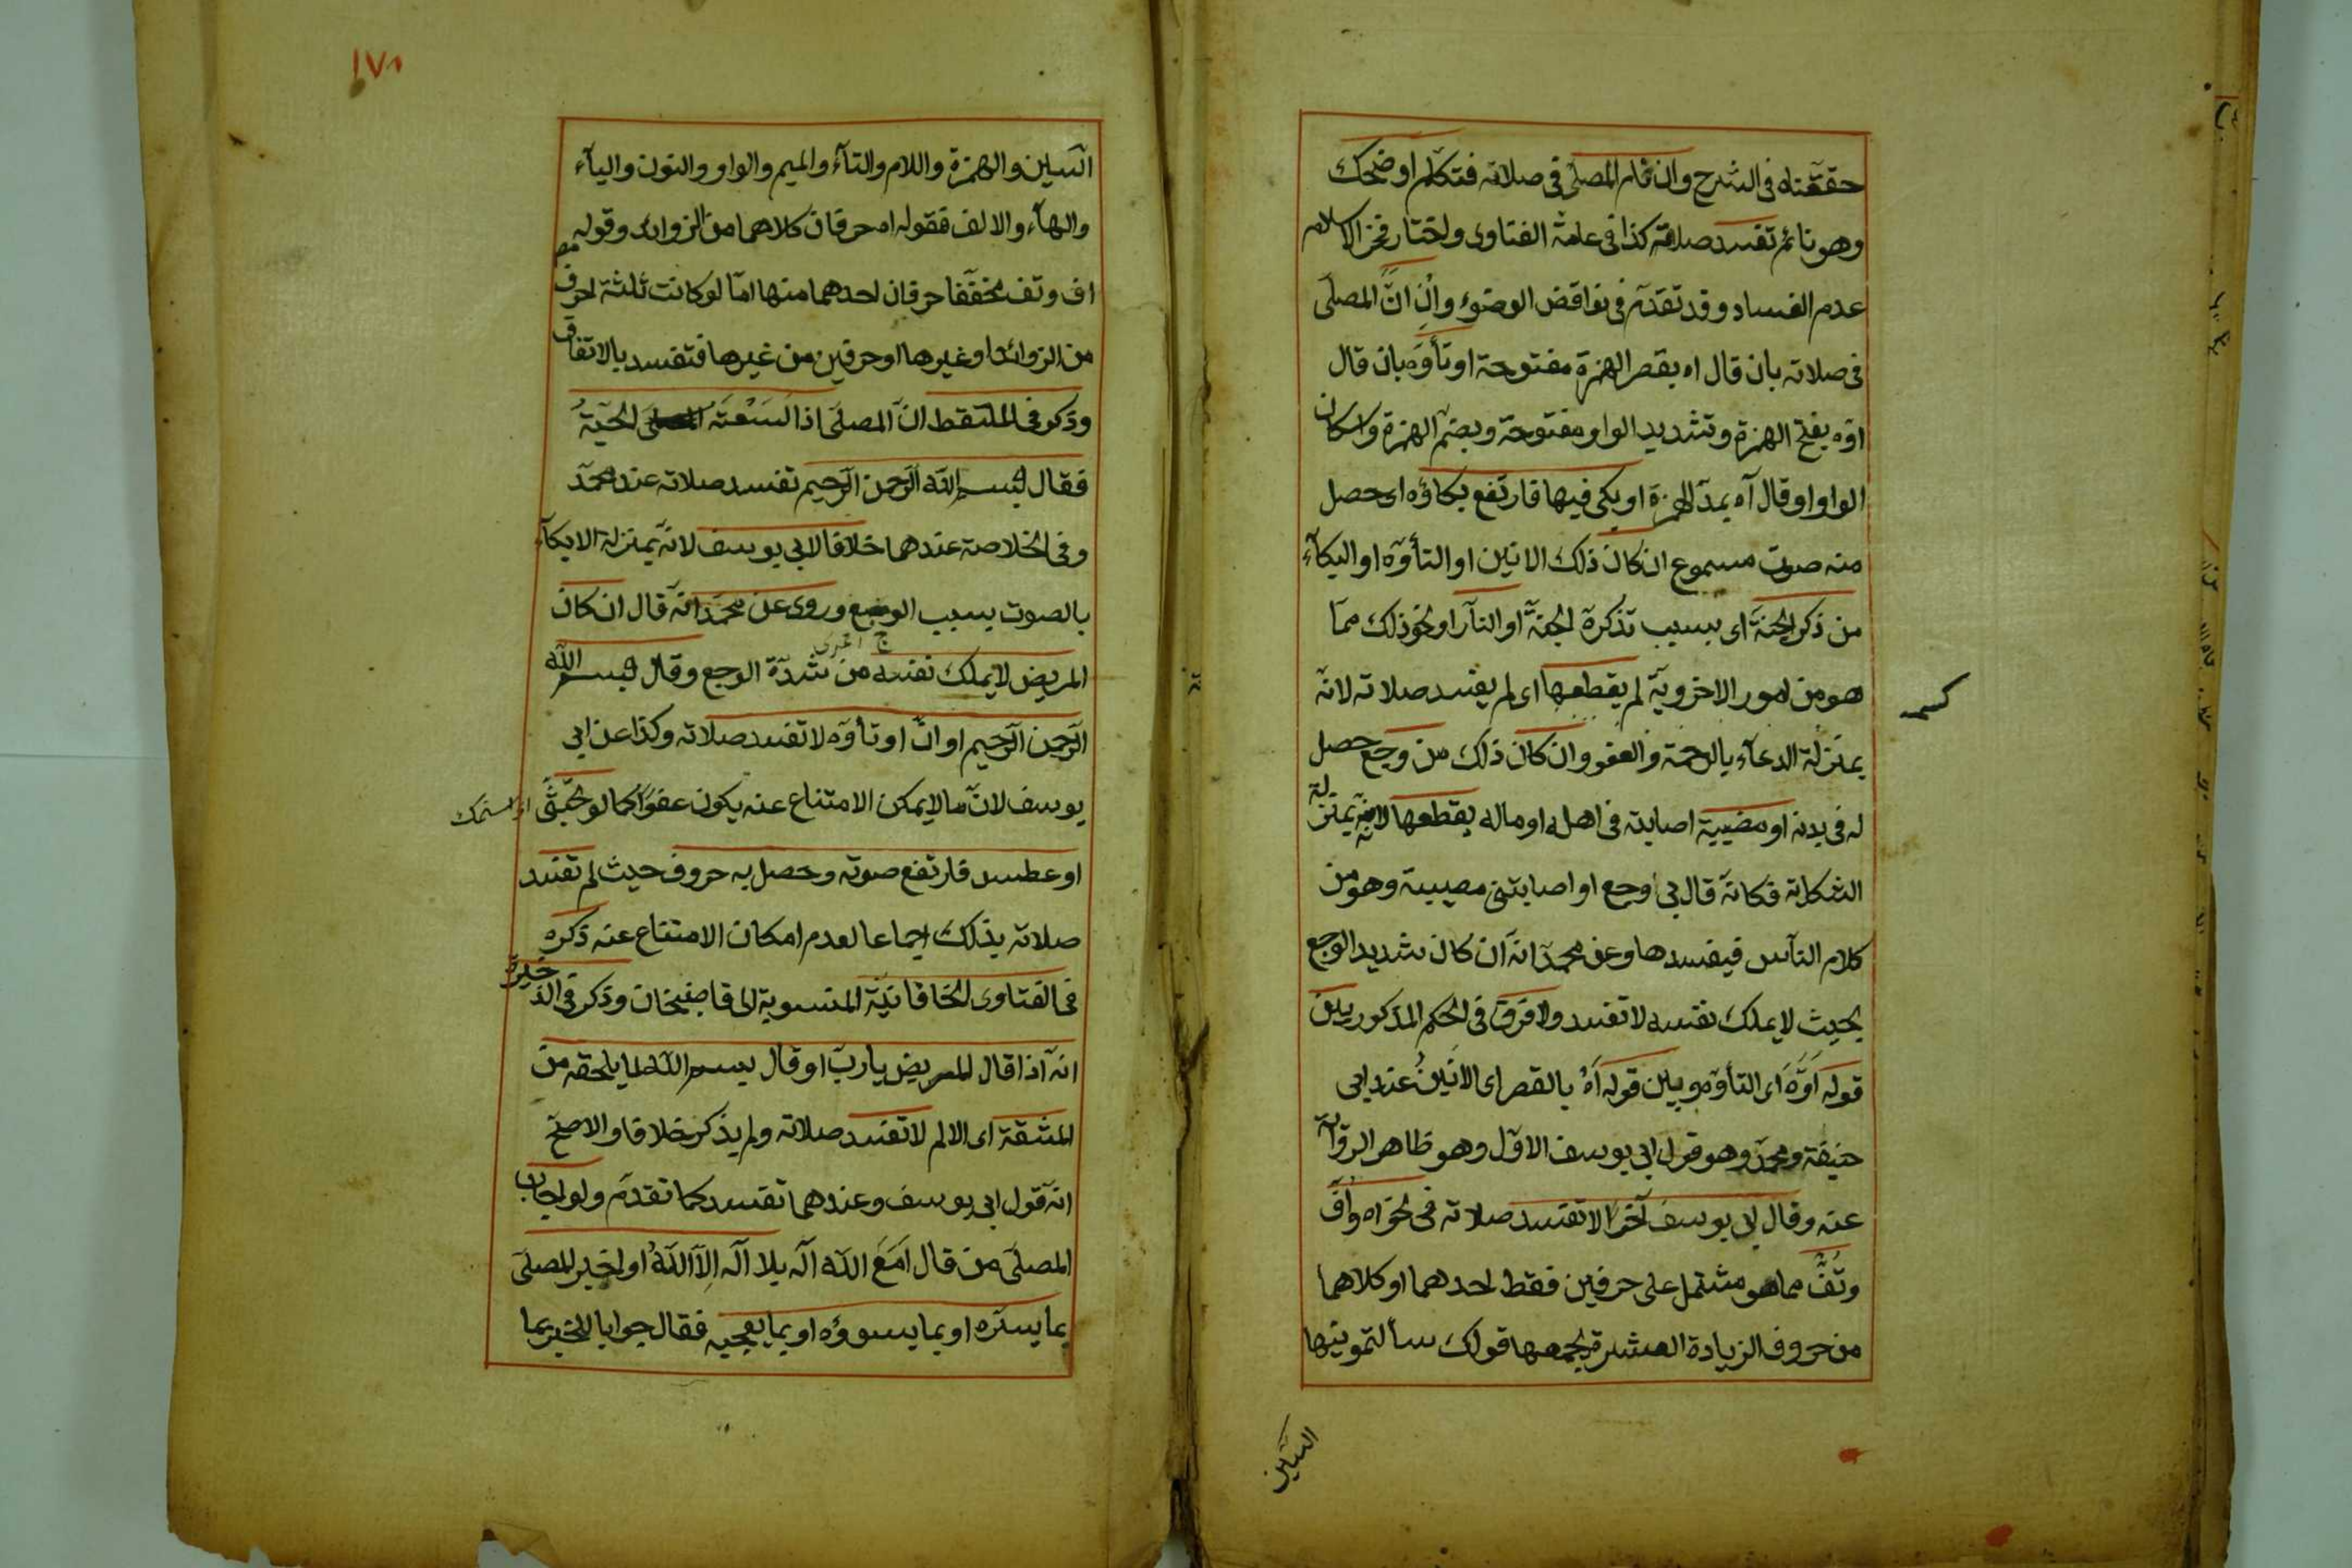 حققناه فى الشرح وان نام المصلى فى صلاته فتكلم او ضحك
وهو نائم تفسد صلاته كذا فى عامة الفتاوى واختار فخر الاسلام
عدم الفساد وقد تقدم فى نواقض الوضوء وان انّ المصلى
فى صلاته بان قال اه بقصر الهمزة مفتوحة او تأوّه بان قال
اوّه بفتح الهمزة وتشديد الواو مفتوحة وبضم الهمزة واسكان
الواو او قال آه بمدّ الهمزة او بكى فيها فارتفع بكاؤه اى حصل
منه صوت مسموع ان كان ذلك الانين او التأوّه او البكآء
من ذكر الجنة اى بسبب تذكرة الجنة او النار او نحو ذلك ممّا
هو من امور الاخرويّة لم يقطعها اى لم يفسد صلاته لانّه
بمنزلة الدعآء بالرحمة والعفو وان كان ذلك من وجع حصل
له فى بدنه او مصيبة اصابته فى اهله او ماله يقطعها لانه بمنزلة
الشكاية فكانّه قال بى وجع او اصابتنى مصيبة وهو من
كلام النّاس فيفسدها وعن محمد انّه ان كان شديد الوجع
بحيث لا يملك نفسه لا تفسد ولا فرق فى الحكم المذكور بين
قوله اوّه اى التأوّه وبين قوله اه بالقصر اى الانين عند ابى
حنيفة ومحمد وهو قول ابى يوسف الاوّل وهو ظاهر الرواية
عنه وقال ابى يوسف آخرا لا تفسد صلاته فى نحو اه وأفّ
وتُفّ مما هو مشتمل على حرفين فقط احدهما او كلاهما
من حروف الزيادة العشرة يجمعها قولك سألتمونيها
السّين
١٧٨
السّين والهمزة واللام والتآء والميم والواو والنون واليآء
والهآء والالف فقوله اه حرفان كلاهما من الزوائد وقوله
اف وتف مخفّفا حرفان احدهما منها امّا لو كانت ثلثة احرف
من الزوائد او غيرها او حرفين من غيرها فتفسد بالاتفاق
وذكر فى الملتقط انّ المصلى اذا لسعته الحيّة
فقال بسم الله الرّحمن الرّحيم تفسد صلاته عند محمّد
وفى الخلاصة عندهما خلافا لابى يوسف لانّه بمنزلة الابكآء
بالصوت بسبب الوجع وروى عن محمد انّه قال ان كان
المريض لا يملك نفسه من شدّة الوجع وقال بسم الله
الرّحمن الرّحيم او انّ او تأوّه لا تفسد صلاته وكذا عن ابى
يوسف لانّ ما لا يمكن الامتناع عنه يكون عفوا كما لو تجشّى
او عطس فارتفع صوته وحصل به حروف حيث لم تفسد
صلاته بذلك اجماعا لعدم امكان الامتناع عنه ذكره
فى الفتاوى الخاقانيّة المنسوبة الى قاضيخان وذكر فى الذخيرة
انّه اذا قال المريض يا ربّ او قال بسم الله لما يلحقه من
المشقة اى الالم لا تفسد صلاته ولم يذكر خلافا والاصحّ
انّه قول ابى يوسف وعندهما تفسد كما تقدّم ولو اجاب
المصلّى من قال امع الله آله بلا آله الّا الله او اخبر المصلّى
بما يسرّه او بما يسوؤه او بما يعجبه فقال جوابا للمخبر بما